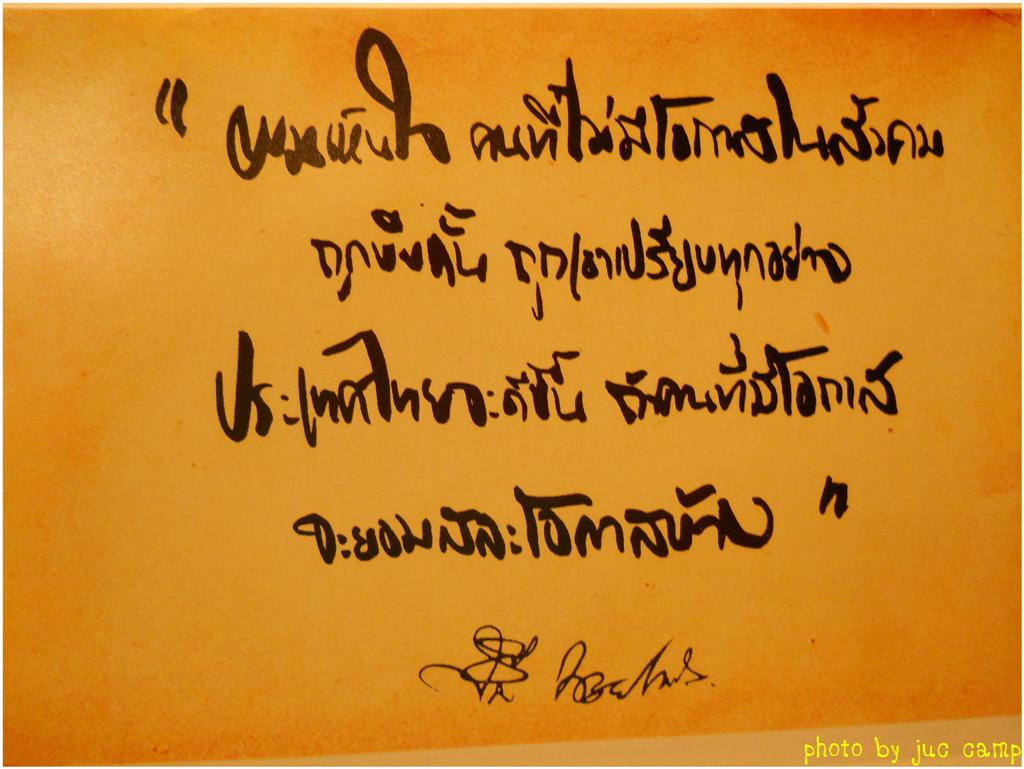 “ ผมเห็นใจ คนที่ไม่มีโอกาสในสังคม
ถูกบีบคั้น ถูกเอาเปรียบทุกอย่าง
ประเทศไทยจะดีขึ้น ถ้าคนที่มีโอกาส
จะยอมสละโอกาสบ้าง ”
photo by juc camp